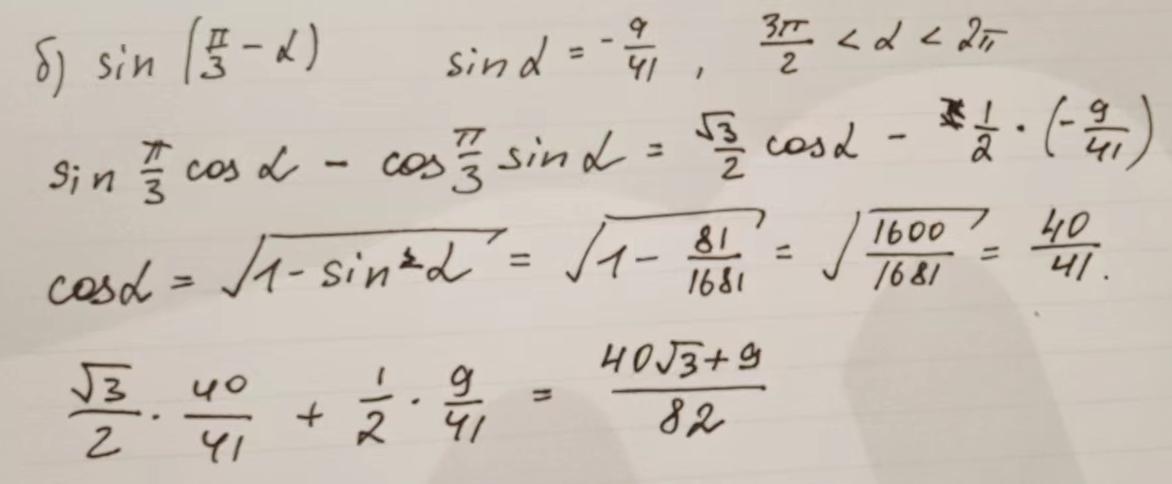 б) sin (π/3 - α) sin α = -9/41, 3π/2 < α < 2π
sin π/3 cos α - cos π/3 sin α = √3/2 cos α - 1/2 · (-9/41)
cos α = √(1 - sin²α) = √(1 - 81/1681) = √(1600/1681) = 40/41.
√3/2 · 40/41 + 1/2 · 9/41 = (40√3+9)/82